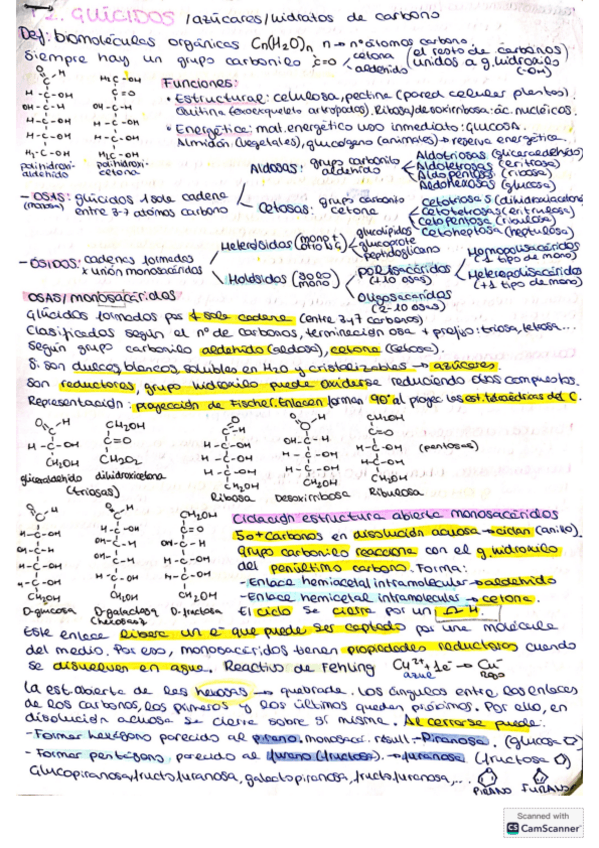 T2. GLÚCIDOS /azúcares/hidratos de carbono
Def: biomoléculas orgánicas Cn(H2O)n n → nº átomos carbono
Siempre hay un grupo carbonilo C=O cetona aldehído (el resto de carbonos unidos a g. hidroxilo (-OH)
Funciones:
• Estructural: celulosa, pectina (pared celular plantas).
Quitina (exoesqueleto artrópodos). Ribosa/desoxirribosa: ác. nucleicos.
• Energética: mat. energético uso inmediato: glucosa.
Almidón (vegetales), glucógeno (animales) → reserva energética.
polihidroxialdehído
polihidroxicetona
- OSAS: glúcidos 1 sola cadena
(monosa) entre 3-7 átomos carbono
Aldosas: grupo carbonilo aldehído
Aldotriosas (gliceraldehído)
Aldotetrosas (eritrosa)
Aldopentosas (ribosa)
Aldohexosas (glucosa)
Cetosas: grupo carbonilo cetona
Cetotriosas (dihidroxiacetona)
Cetotetrosas (eritrulosa)
Cetopentosa (ribulosa)
Cetoheptosa (heptulosa)
- ÓSIDOS: cadenas formadas
x unión monosacáridos
Heterósidos (mono + otro G)
glucolípidos
glucoprote
peptidoglicano
Holósidos (solo mono)
Polisacáridos (+10 osas)
Homopolisacáridos (1 tipo de mono)
Heteropolisacáridos (+1 tipo de mono)
Oligosacáridos (2-10 osas)
OSAS/monosacáridos
Glúcidos formados por 1 sola cadena (entre 3 y 7 carbonos)
Clasificados según el nº de carbonos, terminación osa + prefijo: triosa, tetrosa...
Según grupo carbonilo aldehído (aldosa), cetona (cetosa).
Si son dulces, blancos, solubles en H2O y cristalizables → azúcares.
Son reductores, grupo hidroxilo puede oxidarse reduciendo otros compuestos.
Representación: proyección de Fischer. Enlacen forman 90° al proyec las est. tetraédricas del C.
gliceraldehído dihidroxiacetona
(triosas)
Ribosa Desoxirribosa Ribulosa
(pentosas)
D-glucosa D-galactosa D-fructosa
(hexosas)
Ciclación estructura abierta monosacáridos
5 o + carbonos en disolución acuosa → ciclan (anillo).
Grupo carbonilo reacciona con el g. hidroxilo
del penúltimo carbono. Forma:
- Enlace hemiacetal intramolecular → aldehído
- Enlace hemicetal intramolecular → cetona.
El ciclo se cierra por un
Este enlace libera un e- que puede ser captado por una molécula
del medio. Por eso, monosacáridos tienen propiedades reductoras cuando
se disuelven en agua. Reactivo de Fehling Cu2+ + 1e- → Cu-
azul rojo
La est abierta de las hexosas → quebrada. Los ángulos entre los enlaces
de los carbonos, los primeros y los últimos quedan próximos. Por ello, en
disolución acuosa se cierra sobre sí misma. Al cerrarse puede:
- Formar hexágono parecido al pirano. monosac. result. → Piranosa. (glucosa)
- Formar pentágono, parecido al furano (fructosa). → furanosa (fructosa)
Glucopiranosa, fructofuranosa, galactopiranosa, fructofuranosa,...
PIRANO FURANO
Scanned with
CS CamScanner